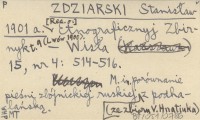 P ZDZIARSKI Stanisław
[Rec. :]
1901 a. Etnograficznyj Zbir-
nyk t. 9 (Lwów 1900). Wisła
15, nr 4: 514-516.
M. in. porównanie
pieśni zbójnickiej ruskiej z podha-
lańską.
(ze zbioru V. Hnatiuka)